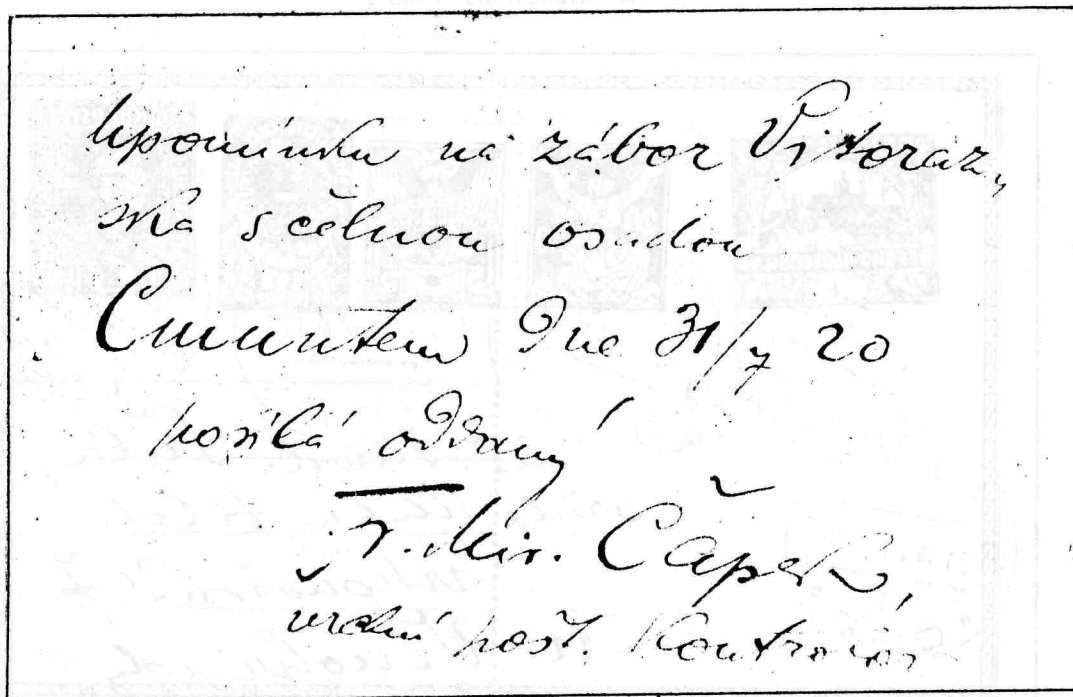 Upomínku na zábor Vitoraz„
ska s čelnou osadou
Cmuntem dne 31/7 20
posílá oddaný
Mir. Čapek,
vrchní pošt. kontrolor